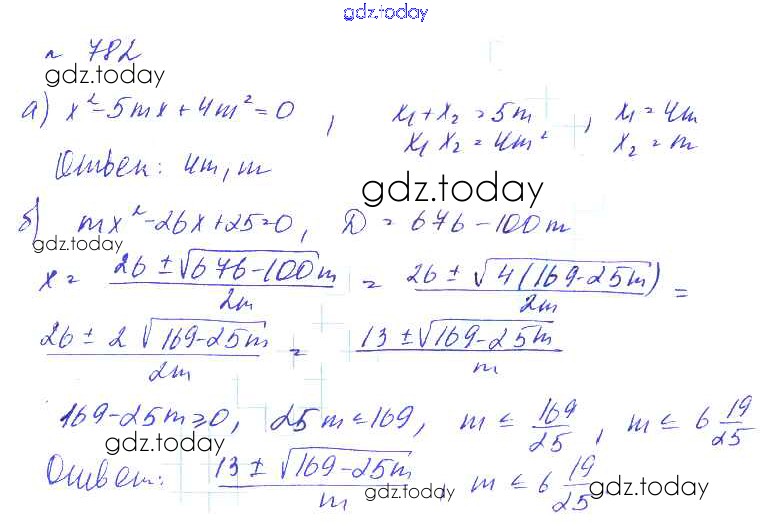 gdz.today
n 782
gdz.today
а) x² - 5mx + 4m² = 0 , x₁ + x₂ = 5m , x₁ = 4m
x₁ x₂ = 4m² x₂ = m
Ответ: 4m, m
gdz.today
б) mx² - 26x + 25 = 0, D = 676 - 100m
gdz.today
x = (26 ± √(676 - 100m))/2m = (26 ± √(4(169 - 25m)))/2m =
(26 ± 2√(169 - 25m))/2m = (13 ± √(169 - 25m))/m
169 - 25m ≥ 0, 25m ≤ 169, m ≤ 169/25, m ≤ 6 19/25
gdz.today
Ответ: (13 ± √(169 - 25m))/m, m ≤ 6 19/25
gdz.today gdz.today